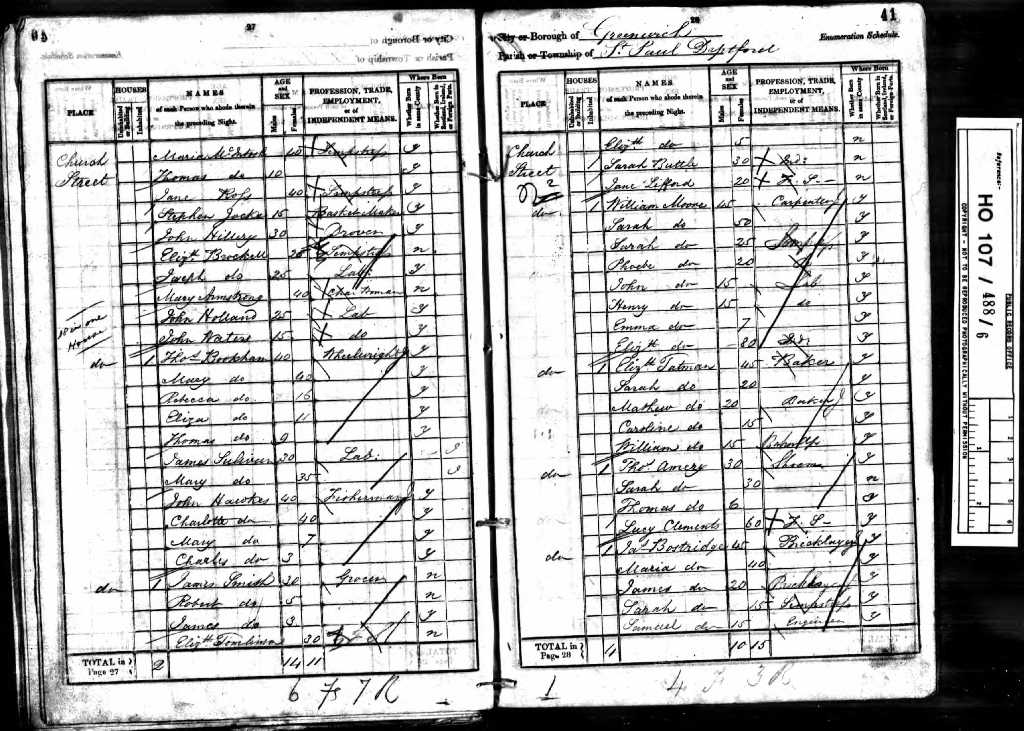 27
PLACE
HOUSES
Uninhabited or Building
Inhabited
NAMES
of each Person who abode therein the preceding Night.
AGE and SEX
Males
Females
PROFESSION, TRADE, EMPLOYMENT, or of INDEPENDENT MEANS.
Where Born
Whether Born in same County
Whether Born in Scotland, Ireland, or Foreign Parts.
Church Street
Maria McIntosh 40 Sempstress y
Thomas do 10 y
Jane Ross 40 Sempstress y
Stephen 15 Basket Maker y
John Hillery 30 Drover y
Elizth Brockell Sempstress n
Joseph do 25 Lab: y
Mary Armstrong 40 Char Woman n
John Holland 25 Lab y
John Waters 15 do y
18 in one House
do 1 Thos Bookham 40 Wheelwright y
Mary do 40 y
Rebecca do 15 y
Eliza do 11 y
Thomas do 9 y
James Sulivan 30 Lab: J
Mary do 35 J
John Hawkes 40 Fisherman y
Charlotte do 40 y
Mary do 7 y
Charles do 3 y
do 1 James Smith 30 Grocer n
Robert do 5 n
James do 3 y
Elizth Tomlinson 30 F S n
TOTAL in Page 27 2 14 11
6 7 R
28
41
City or Borough of Greenwich
Parish or Township of St Paul Deptford
Enumeration Schedule.
PLACE
HOUSES
Uninhabited or Building
Inhabited
NAMES
of each Person who abode therein the preceding Night.
AGE and SEX
Males
Females
PROFESSION, TRADE, EMPLOYMENT, or of INDEPENDENT MEANS.
Where Born
Whether Born in same County
Whether Born in Scotland, Ireland, or Foreign Parts.
Church Street
Elizth do 5 n
Sarah Buttle 30 Ind: n
Jane Lifford 20 F. S. n
do 1 William Moore 45 Carpenter y
Sarah do 50 y
Sarah do 25 y
Phoebe do 20 y
John do 15 Lab y
Henry do 15 do y
Emma do 7 y
Elizth do 80 Ind: y
do 1 Elizth Tatman 45 Baker y
Sarah do 20 y
Mathew do 20 Baker J y
Caroline do 15 y
William do 15 y
do 1 Thos Amery 30 Shoem y
Sarah do 30 n
Thomas do 6 y
Lucy Clements 60 F S y
do 1 Jas Bostridge 45 Bricklayer y
Maria do 40 y
James do 20 y
Sarah do 15 Sempstress y
Samuel do 15 Engineer y
TOTAL in Page 28 4 10 15
1 4 3 R
Reference:-
HO 107 / 488/6
PUBLIC RECORD OFFICE
COPYRIGHT - NOT TO BE REPRODUCED PHOTOGRAPHICALLY WITHOUT PERMISSION
1 2 3 4 5 6